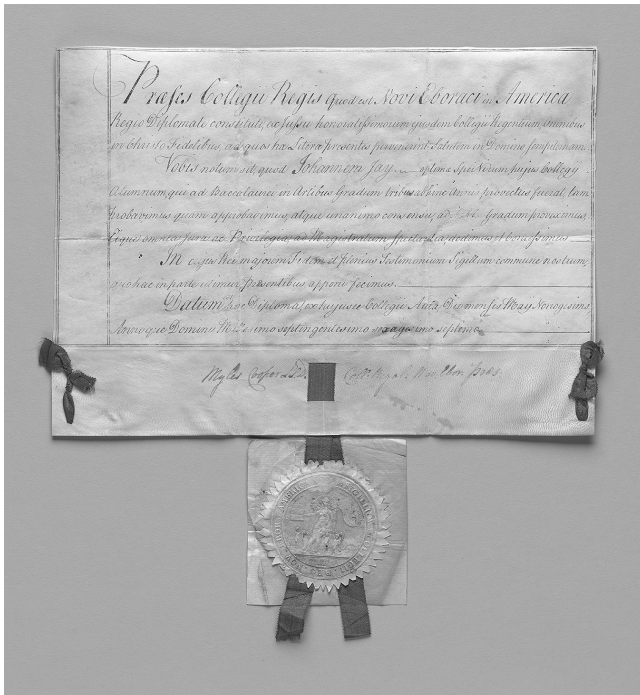 Præses Collegii Regis quod est Novi Eboraci in America
Regio Diplomate constituti, ex Jussu honoratissimorum ejusdem Collegii Regentium, omnibus
in Christo Fidelibus, ad quos hæ Literæ præsentes pervenerint Salutem in Domino sempiternam.
Vobis notum sit, quod Johannem Jay optimæ Spei Virum, hujus Collegii
Alumnum, qui ad Baccalaurei in Artibus Gradum tribus abhinc annis provectus fuerat, tam
probavimus quam approbavimus, atque unanimo consensu, ad Gradum proveximus,
Eique omnia Jura ac Privilegia, ad Magistratum spectantia, dedimus et concessimus
In cujus Rei majorem Fidem et plenius Testimonium Sigillum commune nostrum,
quo hac in parte utimur, præsentibus apponi fecimus.
Datum hoc Diploma ex hujusce Collegii Aula Die mensis Maij
Annoque Domini Millesimo septingentesimo sexagesimo septimo
Myles Cooper LLD.